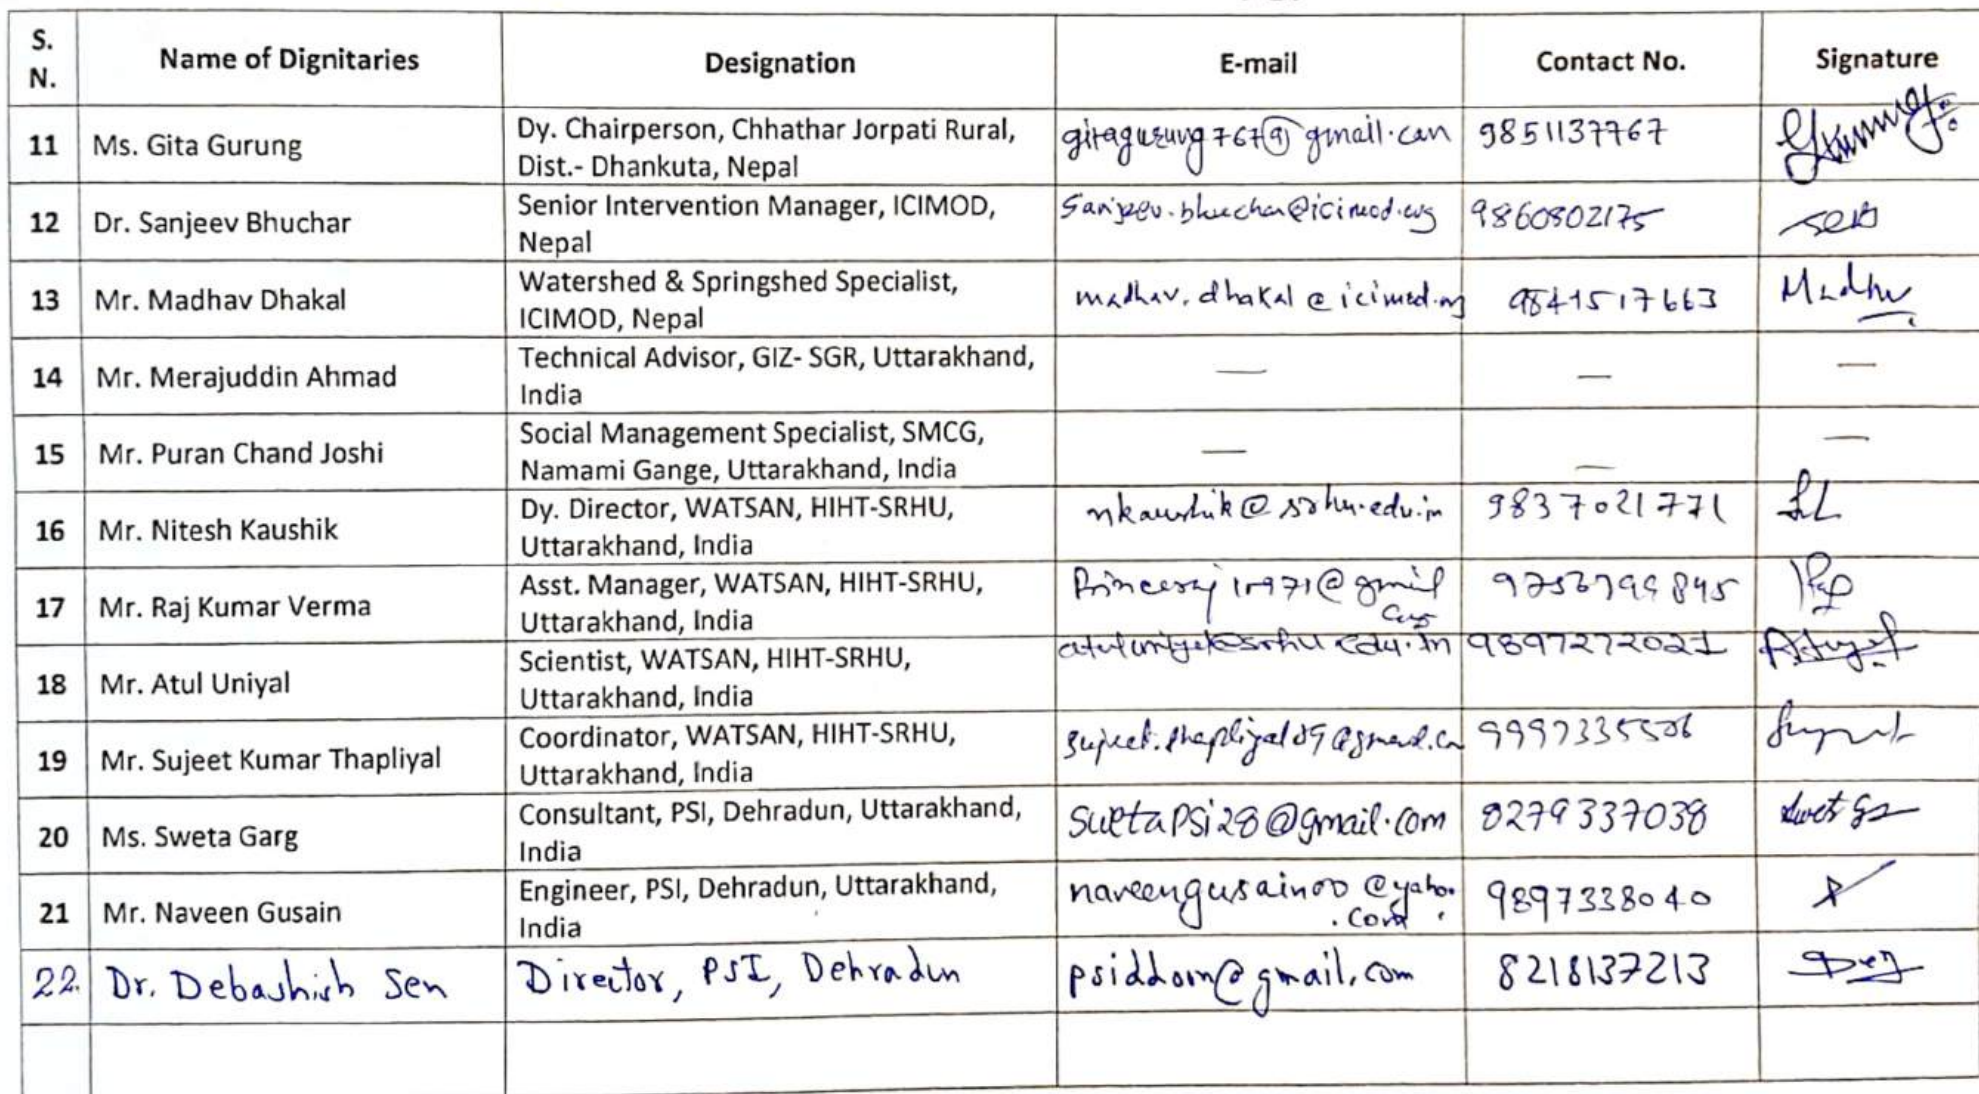 S. N. Name of Dignitaries Designation E-mail Contact No. Signature
11 Ms. Gita Gurung Dy. Chairperson, Chhathar Jorpati Rural, Dist.- Dhankuta, Nepal gitagurung767@gmail.com 9851137767
12 Dr. Sanjeev Bhuchar Senior Intervention Manager, ICIMOD, Nepal Sanjeev.bhuchar@icimod.org 9860802175
13 Mr. Madhav Dhakal Watershed & Springshed Specialist, ICIMOD, Nepal madhav.dhakal@icimod.org 9841517663 Madhav
14 Mr. Merajuddin Ahmad Technical Advisor, GIZ- SGR, Uttarakhand, India — — —
15 Mr. Puran Chand Joshi Social Management Specialist, SMCG, Namami Gange, Uttarakhand, India — — —
16 Mr. Nitesh Kaushik Dy. Director, WATSAN, HIHT-SRHU, Uttarakhand, India nkaushik@srhu.edu.in 9837021771
17 Mr. Raj Kumar Verma Asst. Manager, WATSAN, HIHT-SRHU, Uttarakhand, India
18 Mr. Atul Uniyal Scientist, WATSAN, HIHT-SRHU, Uttarakhand, India atuluniyal@srhu.edu.in 9897272021
19 Mr. Sujeet Kumar Thapliyal Coordinator, WATSAN, HIHT-SRHU, Uttarakhand, India sujeet.thapliyal89@gmail.com
20 Ms. Sweta Garg Consultant, PSI, Dehradun, Uttarakhand, India swetapsi28@gmail.com 8279337038
21 Mr. Naveen Gusain Engineer, PSI, Dehradun, Uttarakhand, India naveengusain00@yahoo.com 9897338040
22. Dr. Debashish Sen Director, PSI, Dehradun psiddoon@gmail.com 8218137213